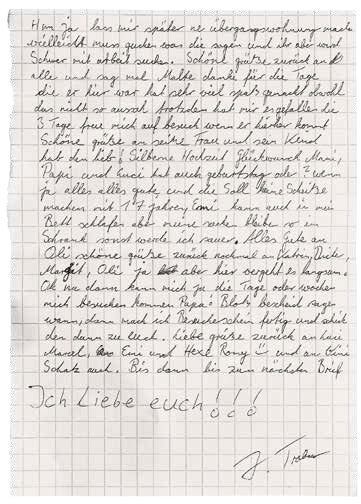 Hm ja dass mir später ne übergangswohnung mach
vielleicht muss gucken was die sagen und ihr aber wird
Schwer mit arbeit suchen. Schöne grüße zurück an d
alle und sag mal Malte danke für die Tage
die er hier war hat sehr viel spaß gemacht obwohl
das nicht so aussah trotzdem hat mir es gefallen die
3 Tage freu mich auf besuch wenn er hierher kommt
Schöne grüße an seine Frau und sein Kind
hab den lieb! Silberne Hochzeit Glückwunsch Mami,
Papi und Luci hat auch geburtstag oder? wenn
ja alles alles gute und die Soll keine Scheiße
machen mit 17 Jahren, Emi kann auch in mein
Bett schlafen aber meine sachen bleiben so im
Schrank sonst werde ich sauer. Alles Gute an
Oli schöne grüße zurück nochmal an Katrin, Dieter,
Margit, Oli ja aber hier vergeht es langsam.
Ok na dann kann mich ja die Tage oder wochen
mich besuchen kommen Papa! Bloß bescheid sagen
wann, dann mach ich Besucherschein fertig und schick
den dann zu Euch. Liebe grüße zurück an
Marcel, Emi und Hexe Romy und an
Schatz auch. Bis dann bis zum nächsten Brief
Ich Liebe euch!!!
J.